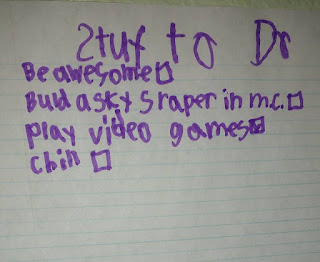 Stuf to Do
Be awesome
Buld a sky sraper in m.c.
play video games
chin